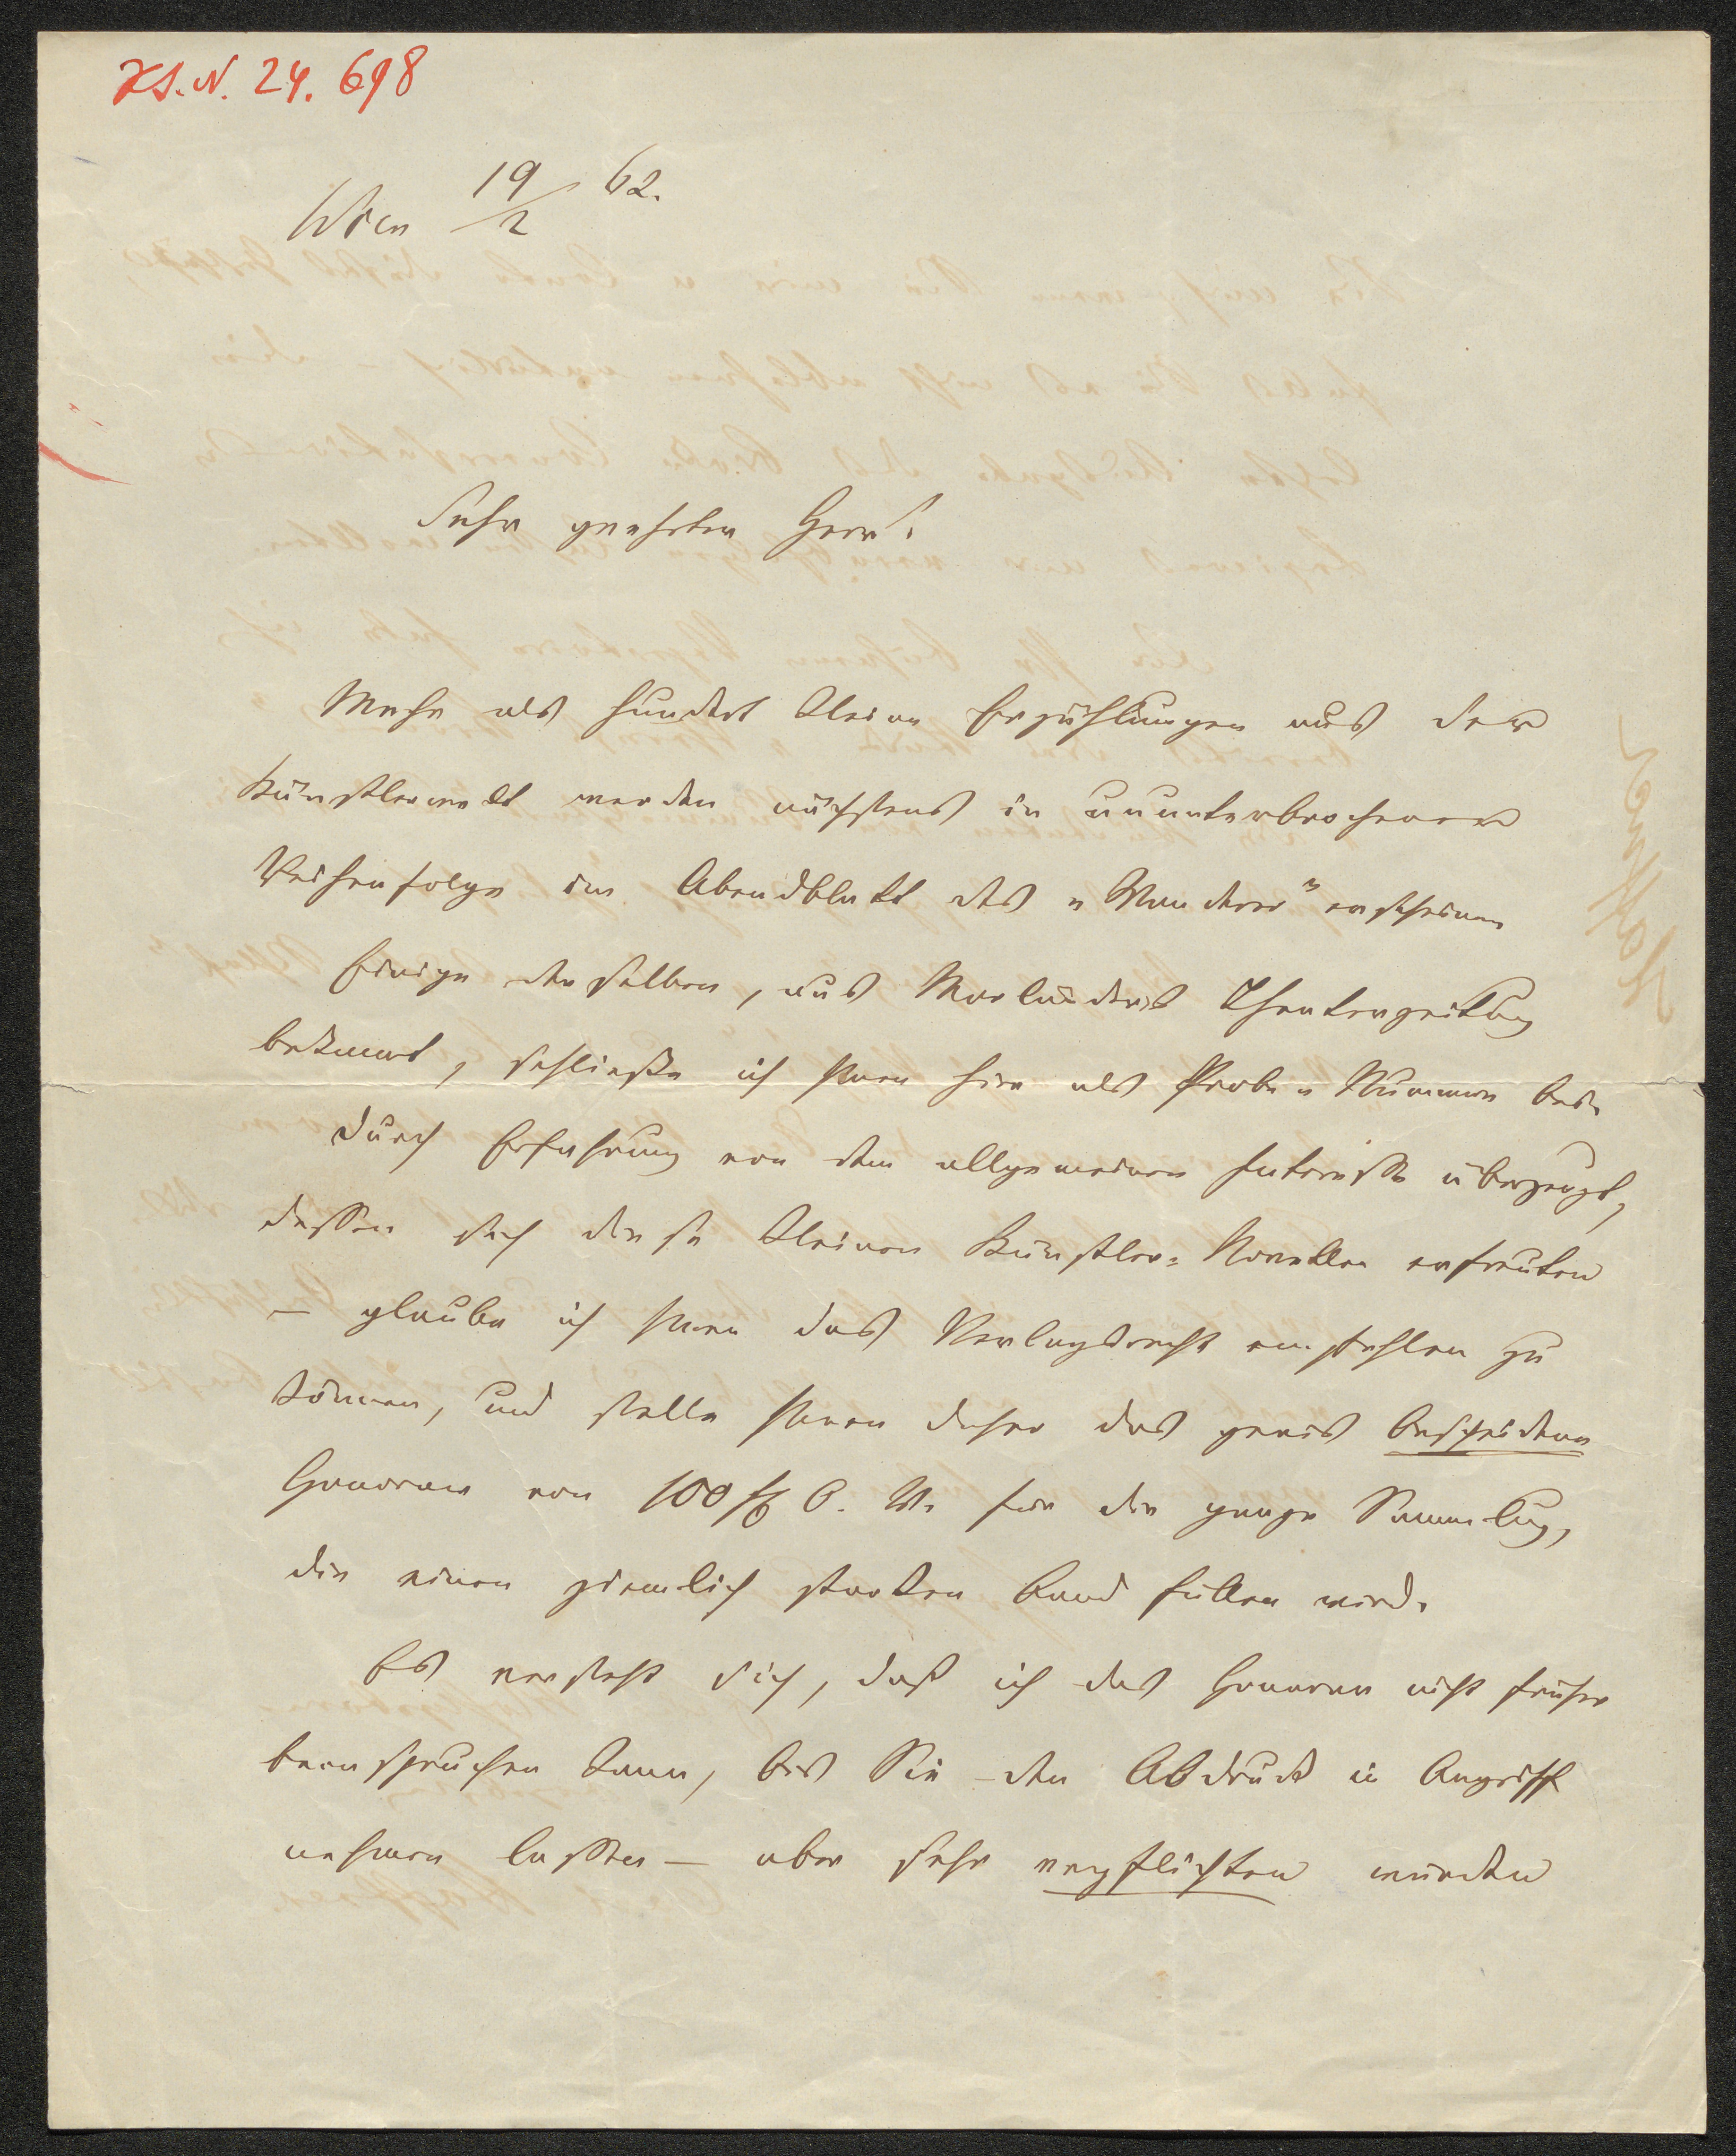 HS. N. 24.698
Wien 19/2 62.
Sehr geehrter Herr!
Mehr als hundert kleine Erzählungen aus der
Künstlerwelt werden nächstens in ununterbrochener
Reihenfolge im Abendblatt des „Wanderer" erscheinen
Einige derselben, aus Monatsschrift Theaterzeitung
bekannt, schließe ich Ihnen hier als Probe-Nummern bei.
Durch Erfahrung von dem allgemeinen Interesse überzeugt,
dessen sich diese kleinen Künstler-Novellen erfreuten
— glaube ich Ihnen das Verlagsrecht empfehlen zu
können, und stelle Ihnen daher das gewiß bescheidene
Honorar von 100 fl Ö. W. für die ganze Sammlung,
die einen ziemlich starken Band füllen wird.
Es versteht sich, daß ich das Honorar nicht früher
beanspruchen kann, bis Sie den Abdruck in Angriff
nehmen lassen — aber sehr verpflichten würden